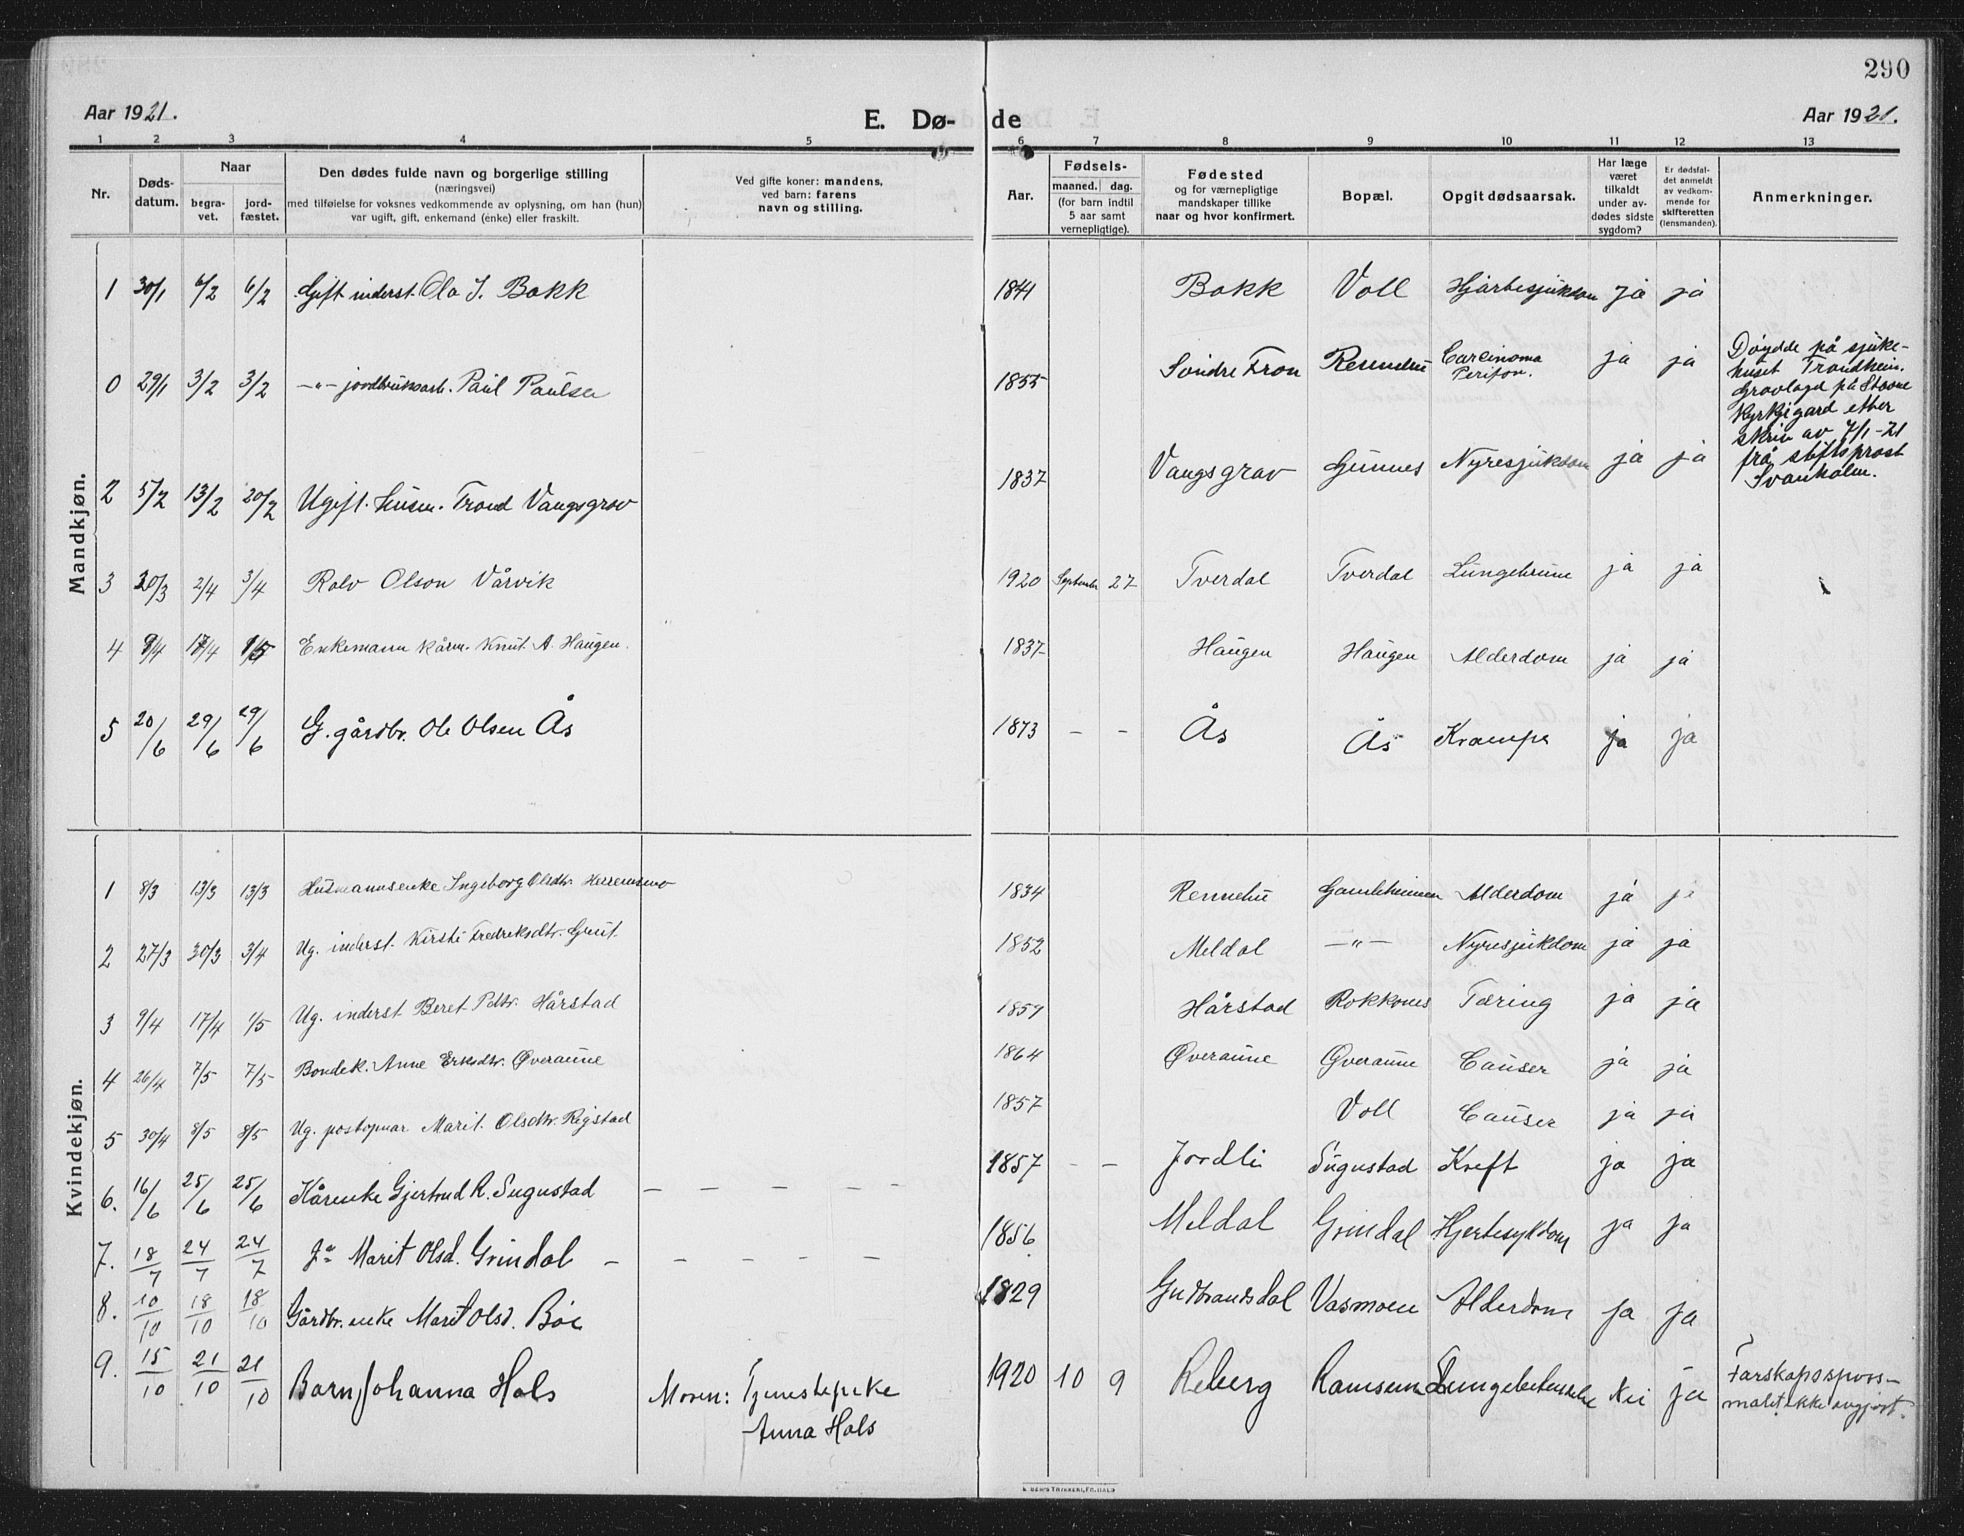 290
Aar 1921.
E. Dø-de
Aar 1921.
1 2 3 4 5 6 7 8 9 10 11 12 13
Nr.
Døds-
datum.
Naar
begra-
vet.
jord-
fæstet.
Den dødes fulde navn og borgerlige stilling
(næringsvei)
med tilføielse for voksnes vedkommende av oplysning, om han (hun)
var ugift, gift, enkemand (enke) eller fraskilt.
Ved gifte koner: mandens,
ved barn: farens
navn og stilling.
Aar.
Fødsels-
maaned. dag.
(for barn indtil
5 aar samt
vernepligtige).
Fødested
og for værnepligtige
mandskaper tillike
naar og hvor konfirmert.
Bopæl.
Opgit dødsaarsak.
Har læge
været
tilkaldt
under av-
dødes sidste
sygdom?
Er dødsfal-
det anmeldt
av vedkom-
mende for
skifteretten
(lensmanden).
Anmerkninger.
Mandkjøn.
1 30/1 6/2 6/2 Gift inderst. Ola J. Bakk 1841 Bakk Voll Hjartesjukdom ja ja
0 29/1 3/2 3/2 —"— jordbruksarb. Paul Paulsen 1855 Søndre Fron Rennebu Carcinoma ja ja
Døydde på sjuke-
huset Trondheim.
Gravlagd på Stavne
Kyrkjigard etter
skriv av 7/1-21
frå stiftsprost
Svanholm.
2 5/2 13/2 20/2 Ugift. Husm. Trond Vangsgrav 1837 Vangsgrav Gunnes Nyresjukdom ja ja
3 30/3 2/4 3/4 Rolv Olson Vårvik 1920 September 27 Tverdal Tverdal Lungebrune ja ja
4 9/4 17/4 1/5 Enkemann kårm. Knut A. Haugen. 1837 Haugen Haugen Alderdom ja ja
5 20/6 29/6 29/6 G. gårdbr. Ole Olsen Ås 1873 – – Ås Ås Krampe ja ja
Kvindekjøn.
1 8/3 13/3 13/3 Husmannsenke Ingeborg Olsdtr. Herremsmo 1834 Rennebu Gamleheimen Alderdom ja ja
2 27/3 30/3 3/4 Ug. inderst. Kirsti Fredriksdtr. Grut. 1852 Meldal —"— Nyresjukdom ja ja
3 9/4 17/4 1/5 Ug. inderst Beret Pdtr. Hårstad 1859 Hårstad Rokkones Tæring ja ja
4 26/4 7/5 7/5 Bondek. Anne Eriksdtr. Øveraune 1864 Øveraune Øveraune Cancer ja ja
5 30/4 8/5 8/5 Ug. postopnar Marit Olsdtr. Rigstad 1857 Voll Cancer ja ja
6. 16/6 25/6 25/6 Kårenke Gjertrud R. Sugustad – – – – – 1857 – – Jordli Sugustad Kreft ja ja
7. 18/7 24/7 24/7 Marit Olsd. Grindal – – – – 1856 Meldal Grindal Hjertesykdom ja ja
8. 10/10 18/10 18/10 Gårdbr. enke Marit Olsd. Bøe 1829 Gudbrandsdal Vasmoen Alderdom ja ja
9. 15/10 21/10 21/10 Barn Johanna Hals Moren: Tjenestepike
Anna Hals
1920 10 9 Reberg Ramsem Lungebetennelse Nei ja
Farskapsspørs-
målet ikke avgjort.